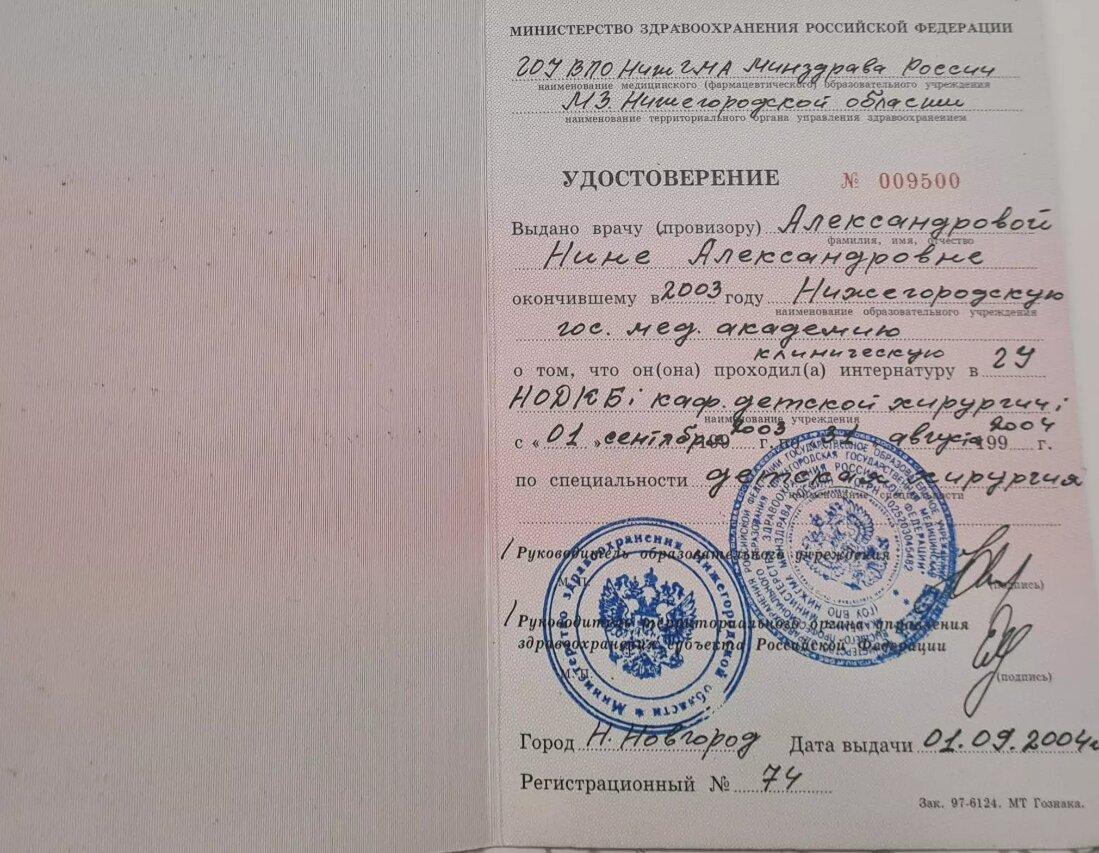 МИНИСТЕРСТВО ЗДРАВООХРАНЕНИЯ РОССИЙСКОЙ ФЕДЕРАЦИИ
ГОУ ВПО НижГМА Минздрава России
наименование медицинского (фармацевтического) образовательного учреждения
МЗ Нижегородской области
наименование территориального органа управления здравоохранением
УДОСТОВЕРЕНИЕ № 009500
Выдано врачу (провизору) Александровой
фамилия, имя, отчество
Нине Александровне
окончившему в 2003 году Нижегородскую
наименование образовательного учреждения
гос. мед. академию
клиническую
о том, что он(она) проходил(а) интернатуру в ГУ
НОДКБ; каф. детской хирургии;
наименование учреждения
2003 2004
с «01» сентября 199 г. по 31 августа 199 г.
по специальности детская хирургия
наименование специальности
Руководитель образовательного учреждения
М. П.
(подпись)
Руководитель территориального органа управления
здравоохранения субъекта Российской Федерации
М. П.
(подпись)
Министерство здравоохранения Нижегородской области *
Город Н. Новгород Дата выдачи 01.09.2004г
Регистрационный № 74
Зак. 97-6124. МТ Гознака.